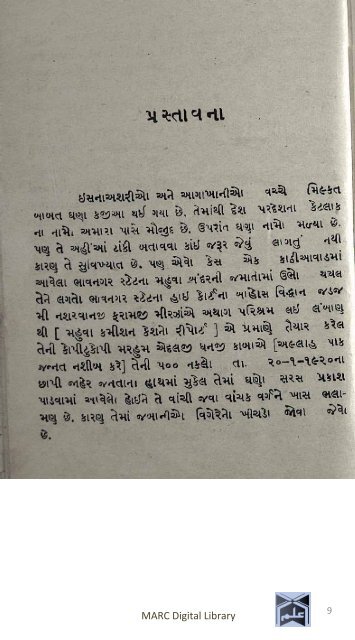 પ્રસ્તાવના
ઇસનાઅશરીઓ અને આગાખાનીઓ વચ્ચે મિલ્કત
બાબત ઘણા કજીઆ થઈ ગયા છે. તેમાંથી દેશ પરદેશના કેટલાક
ના નામો અમારા પાસે મોજીદ છે. ઉપરાંત ઘણા નામો મળ્યા છે.
પણ તે અહીંઆં ટાંકી બતાવવા કાંઈ જરૂર જેવું લાગતું નથી
કારણુ તે સુવિખ્યાત છે. પણ એવો કેસ એક કાઠીઆવાડમાં
આવેલા ભાવનગર સ્ટેટના મહુવા બંદરની જમાતમાં ઉભો થયલ
તેને લગતો ભાવનગર સ્ટેટના હાઇ કોર્ટના બાહોસ વિદ્વાન જડજ
મી નશરવાનજી ફરામજી મીરઝાંએ અથાગ પરિશ્રમ લઇ લંબાણુ
થી [ મહુવા કમીશન કેશનો રીપોર્ટ ] એ પ્રમાણે તૈયાર કરેલ
તેની કોપીટુકોપી મરહુમ એદલજી ધનજી કાબાએ [અલ્લાહ પાક
જન્નત નશીબ કરે] તેની ૫૦૦ નકલો તા. ૨૦-૧-૧૯૨૦ના
છાપી જાહેર જનતાના હાથમાં મુકેલ તેમાં ઘણો સરસ પ્રકાશ
પાડવામાં આવેલો હોઈને તે વાંચી જવા વાંચક વર્ગને ખાસ ભલા-
મણુ છે. કારણુ તેમાં જબાનીઓ વિગેરેનો ખીચડો જોવા જેવો
છે.
MARC Digital Library
9